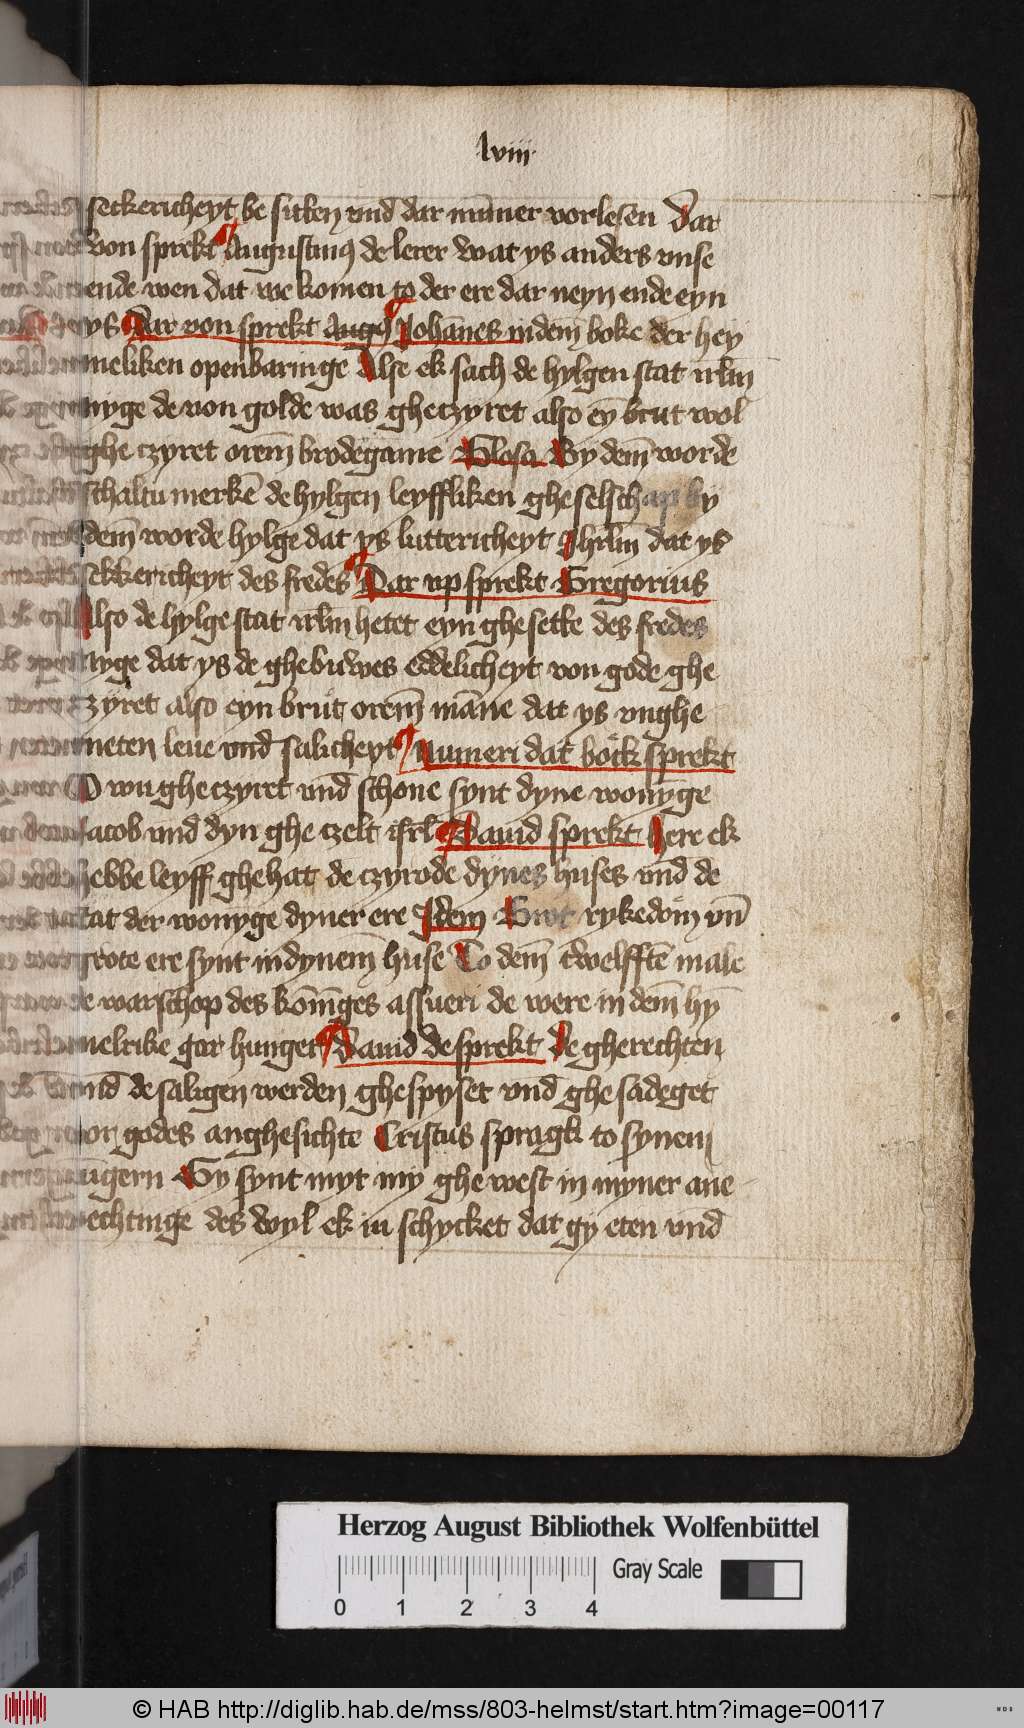 lviii
seckericheyt be sitken vnd dar nūmer vorlesen Dar
von sprekt Augustinꝯ de lerer wat ys anders vnse
ende wen dat we komen to der ere dar neyn ende eyn
ys Dar von sprekt Augꝯ Johānes in dem boke der hey
meliken openbaringe Alse ek sach de hylgen stat irlm
nyge de von golde was gheczyret also eȳ brut wol
ghe czyret orem̄ brodegame Glosa By dem̄ worde
schaltu merkē de hylgen leyffliken gheselschap by
dem̄ worde hylge dat ys luttericheyt Jhrlm dat ys
sekkericheyt des fredes Dar vp sprekt Gregorius
Also de hylge stat irlm hetet eyn ghesetke des fredes
nyge dat ys de ghebuwes eddelicheyt von gode ghe
czyret also eyn brut orem̄ māne dat ys vnghe
meten leue vnd salicheyt Numeri dat bock sprekt
O wu gheczyret vnd schone synt dyne wonynge
Jacob vnd dyn ghe czelt isrl Dauid sprekt Here ek
hebbe leyff ghehat de czyrode dynes huses vnd de
stat der wonyge dyner ere Idem Grot rykedom vn̄
grote ere synt in dynem huse To dem̄ twelfftē male
de warschop des kon̄iges assueri de were in dem̄ hȳ
melrike gar hunger Dauid de sprekt De gherechten
vnd de saligen werden ghespyset vnd ghesadeget
vor godes anghesichte Cristus spragk to synem
iūgern Gy synt myt my ghe west in myner ane
vechtinge des wyl ek iu schycket dat gy eten vnd
Herzog August Bibliothek Wolfenbüttel
Gray Scale
0 1 2 3 4
© HAB http://diglib.hab.de/mss/803-helmst/start.htm?image=00117